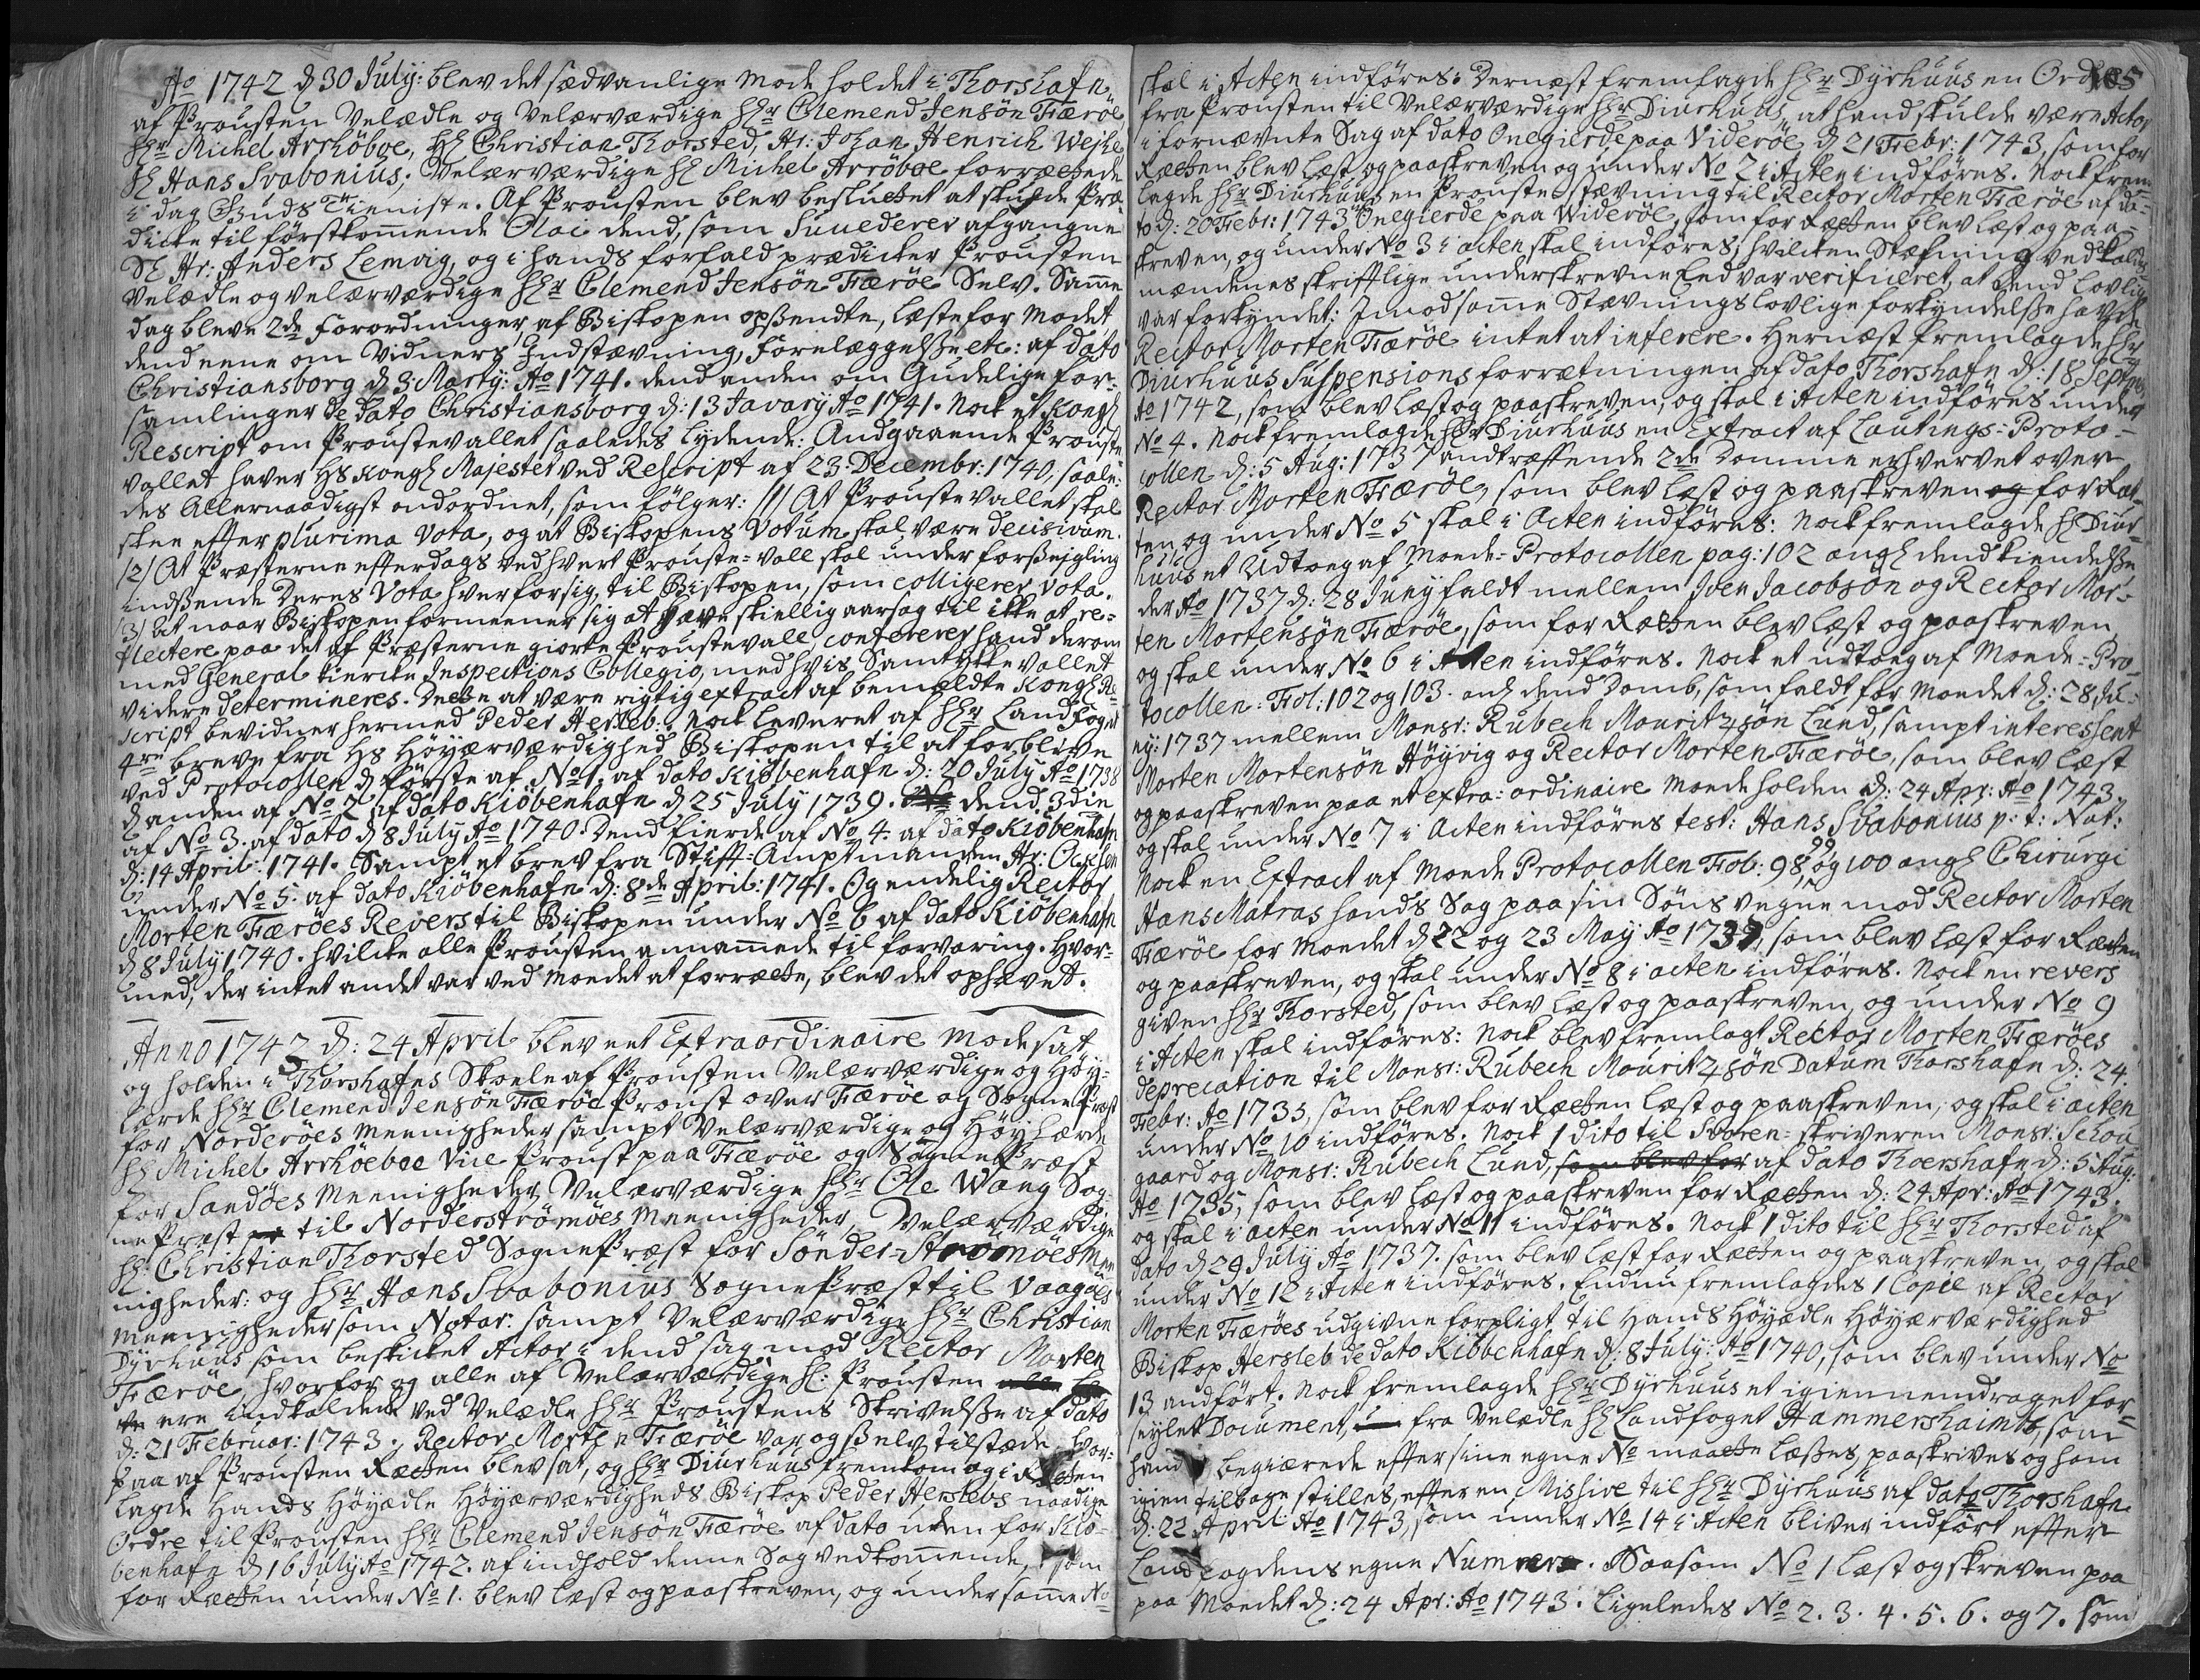 Ao 1742 d 30 July: blev det sædvanlige Mode holdet i Thorshafn
af Prousten Velædle og Velærværdige Hr Clemend Jensön Færöe
Hr Michel Arrhöboe, H Christian Thorsted, Hr: Johan Henrich Weyhe
H Hans Svabonius; Velærværdige H Michel Arröboe forrættede
i dag Guds Tieniste. Af Prousten blev besluttet at skulde Præ-
dicke til förstkommende Olai dend, som Succederer afgangne
Sl Hr: Anders Lemvig, og i hands forfald prædicker Prousten
Velædle og Velærværdige Hr Clemend Jensön Færöe Selv. Samme
dag bleve 2de Forordninger, af Biskopen opsendte, læste for Modet
dend eene om Vidners Indstævning, Forelæggelsse etc: af dato
Christiansborg d 3 Marty: Ao 1741. dend anden om Gudelige for-
samlinger de dato Christiansborg d: 13 Javary Ao 1741. Nock et Kongl
Rescript om Proustevallet saaledes lydende: Andgaaende Prouste
vallet haver Hs Kongl Majestet ved Rescript af 23: Decembr: 1740, saale-
des Allernaadigst andordnet, som fölger: /1/ At Proustevallet skal
skee efter plurima Vota, og at Biskopens Votum skal være decisivum.
/2/ At Præsterne efterdags ved hvert Prouste-Vall skal under forseigling
indsende Deres Vota hver for sig, til Biskopen, som colligerer Vota.
/3/ At naar Biskopen formeener sig at have skiellig aarsag til ikke at re-
flectere paa det af Præsterne giorte Proustevall, confererer hand derom
med General Kiercke Inspections Collegio, med hvis Samtykke vallet
videre determineres. Dette at være rigtig extract af bemældte Kongl Re-
script bevidner hermed Peder Hersleb: Nock leveret af Hr Landfoget
4re breve fra Hs Höyærværdighed Biskopen til at forblive
ved Protocollen d förste af No 1. af dato Kiöbenhafn d: 20 July Ao 1738
d anden af No 2 af dato Kiöbenhafn d 25 July 1739. dend 3die
af No 3. af dato d 8 July Ao 1740. Dend fierde af No 4. af dato Kiöbenhafn
d: 14 April: 1741. Sampt et brev fra Stift-Amptmanden Hr: Ochsen
under No 5. af dato Kiöbenhafn d: 8de April: 1741. Og endelig Rector
Morten Færöes Revers til Biskopen under No 6 af dato Kiöbenhafn
d 8 July 1740. hvilcke alle Prousten annammede til forvaring. Hvor-
med, der intet andet var ved Moedet at forrætte, blev det ophævet.
Anno 1743 d: 24 April blev eet Extraordinaire Mode sat
og holden i Thorshafns Skoele af Prousten Velærværdige og Höy-
lærde Hr Clemend Jensön Færöe Proust over Færöe og Sogne Præst
for Norderöes Meenigheder sampt Velærværdige og Höylærde
H Michel Arrhöeboe Vice Proust paa Færöe og Sogne Præst
for Sandöes Meenigheder, Velærværdige Hr Ole Wang Sog-
ne Præst til Norderströmöes Meenigheder, Velærværdige
H: Christian Thorsted Sogne Præst for Sönder-Strömöes Mee
nigheder: og Hr Hans Svabonius Sogne Præst til Vaagöes
Meenigheder som Notar: sampt Velærværdige Hr Christian
Dyrhuus som beskicket Actor i dend sag mod Rector Morten
Færöe, hvorfor og alle af Velærværdige H: Prousten
ere indkaldede ved Velædle Hr Proustens Skrivelsse af dato
d: 21 Februar: 1743. Rector Morten Færöe var og sselv tilstæde, hvor-
paa af Prousten Rætten blev sat, og Hr Diurhuus fremkom og i Rætten
lagde Hands Höyædle Höyærværdigheds Biskop Peder Herslebs naadige
Ordre til Prousten Hr Clemend Jensön Færöe af dato uden for Kiö-
benhafn d 16 July Ao 1742. af indhold denne Sag vedkommende, som
for Rætten under No 1. blev læst og paaskreven, og under samme No
105
skal i Acten indföres. Dernæst fremlagde Hr Dyrhuus en Ordre
fra Prousten til Velærværdige Hr Diurhuus, at hand skulde være Actor
i fornævnte Sag af dato Onegierde paa Videröe d 21 Febr: 1743, som for
Rætten blev læst og paaskreven og under No 2 i Acten indföres. Nock frem-
lagde Hr Diurhuus en Prouste stævning til Rector Morten Færöe af da-
to d: 20 Febr: 1743 Onegierde paa Wideröe, som for Rætten blev læst og paa-
skreven, og under No 3 i acten skal indföres; hvilcken Stæfning ved Kalds-
mændenes skrifftlige underskrevne Eed var verificeret, at dend lovlig
var forkyndet: Imod samme Stævnings lovlige forkyndelsse hafde
Rector Morten Færöe intet at inferere. Hernæst fremlagde Hr
Diurhuus Suspensions forrætningen af dato Thorshafn d: 18 Septembr
Ao 1742, som blev læst og paaskreven, og skal i Acten indföres under
No 4. Nock fremlagde Hr Diurhuus en Extract af Lautings-Proto-
collen d: 5 Aug: 1737 andtræffende 2de Domme erhvervet over
Rector Morten Færöe, som blev læst og paaskreven og for Ræt-
ten og under No 5 skal i Acten indföres: Nock fremlagde H Diur-
huus et Udtoeg af Moede-Protocollen pag: 102 angl dend kiendelsse
der Ao 1737 d: 28 Juny faldt mellem Joen Jacobsön og Rector Mor-
ten Mortensön Færöe, som for Rætten blev læst og paaskreven
og skal under No 6 i Acten indföres. Nock et udtoeg af Moede-Pro-
tocollen: Fol: 102 og 103. anl dend Domb, som faldt for Moedet d: 28 Ju-
ny: 1737 mellem Monsr: Rubech Mouritzsön Lund, sampt interessent
Morten Mortensön Höyvig og Rector Morten Færöe, som blev læst
og paaskreven paa et extra-ordinaire Moede holden d: 24 Apr: Ao 1743.
og skal under No 7 i Acten indföres test: Hans Svabonius p: t: Not:
Nock en Extract af Moede Protocollen Fol: 98, 99 og 100 angl Chirurgi
Hans Matras hands Sag paa sin Söns vegne mod Rector Morten
Færöe for Moedet d 22 og 23 May Ao 1737, som blev læst for Rætten
og paaskreven, og skal under No 8 i acten indföres. Nock en revers
given Hr Thorsted, som blev læst og paaskreven, og under No 9
i Acten skal indföres: Nock blev fremlagt Rector Morten Færöes
deprecation til Monsr: Rubech Mouritzsön Datum Thorshafn d: 24.
Febr: Ao 1735, som blev for Rætten læst og paaskreven, og skal i acten
under No 10 indföres. Nock 1 dito til Soren-skriveren Monsr: Schou
gaard og Monsr: Rubech Lund, som blev for af dato Thoershafn d: 5 Aug:
Ao 1735, som blev læst og paaskreven for Rætten d: 24 Apr: Ao 1743.
og skal i acten under No 11 indföres. Nock 1 dito til Hr Thorsted af
dato d 29 July Ao 1737. som blev læst for Rætten og paaskreven, og skal
under No 12 i Acten indföres. Endnu fremlagdes 1 Copie af Rector
Morten Færöes udgivne forpligt til Hands Höyædle Höyærværdighed
Biskop Hersleb de dato Kiöbenhafn d: 8 July: Ao 1740, som blev under No
13 andfört. Nock fremlagde Hr Dyrhuus et igiennemdraget for-
seylet Document, fra Velædle H Landfoget Hammershaimb, som
hand begiærede efter sine egne No maatte læsses, paaskrives og ham
igien tilbage stilles, efter en Missive til Hr Dyrhuus af dato Thorshafn
d: 22 April Ao 1743, som under No 14 i Acten bliver indfört efter
Landfogdens egne Numrere. Saasom No 1 læst og skreven paa
paa Moedet d: 24 Apr: Ao 1743. Ligeledes No 2. 3. 4. 5. 6. og 7. som